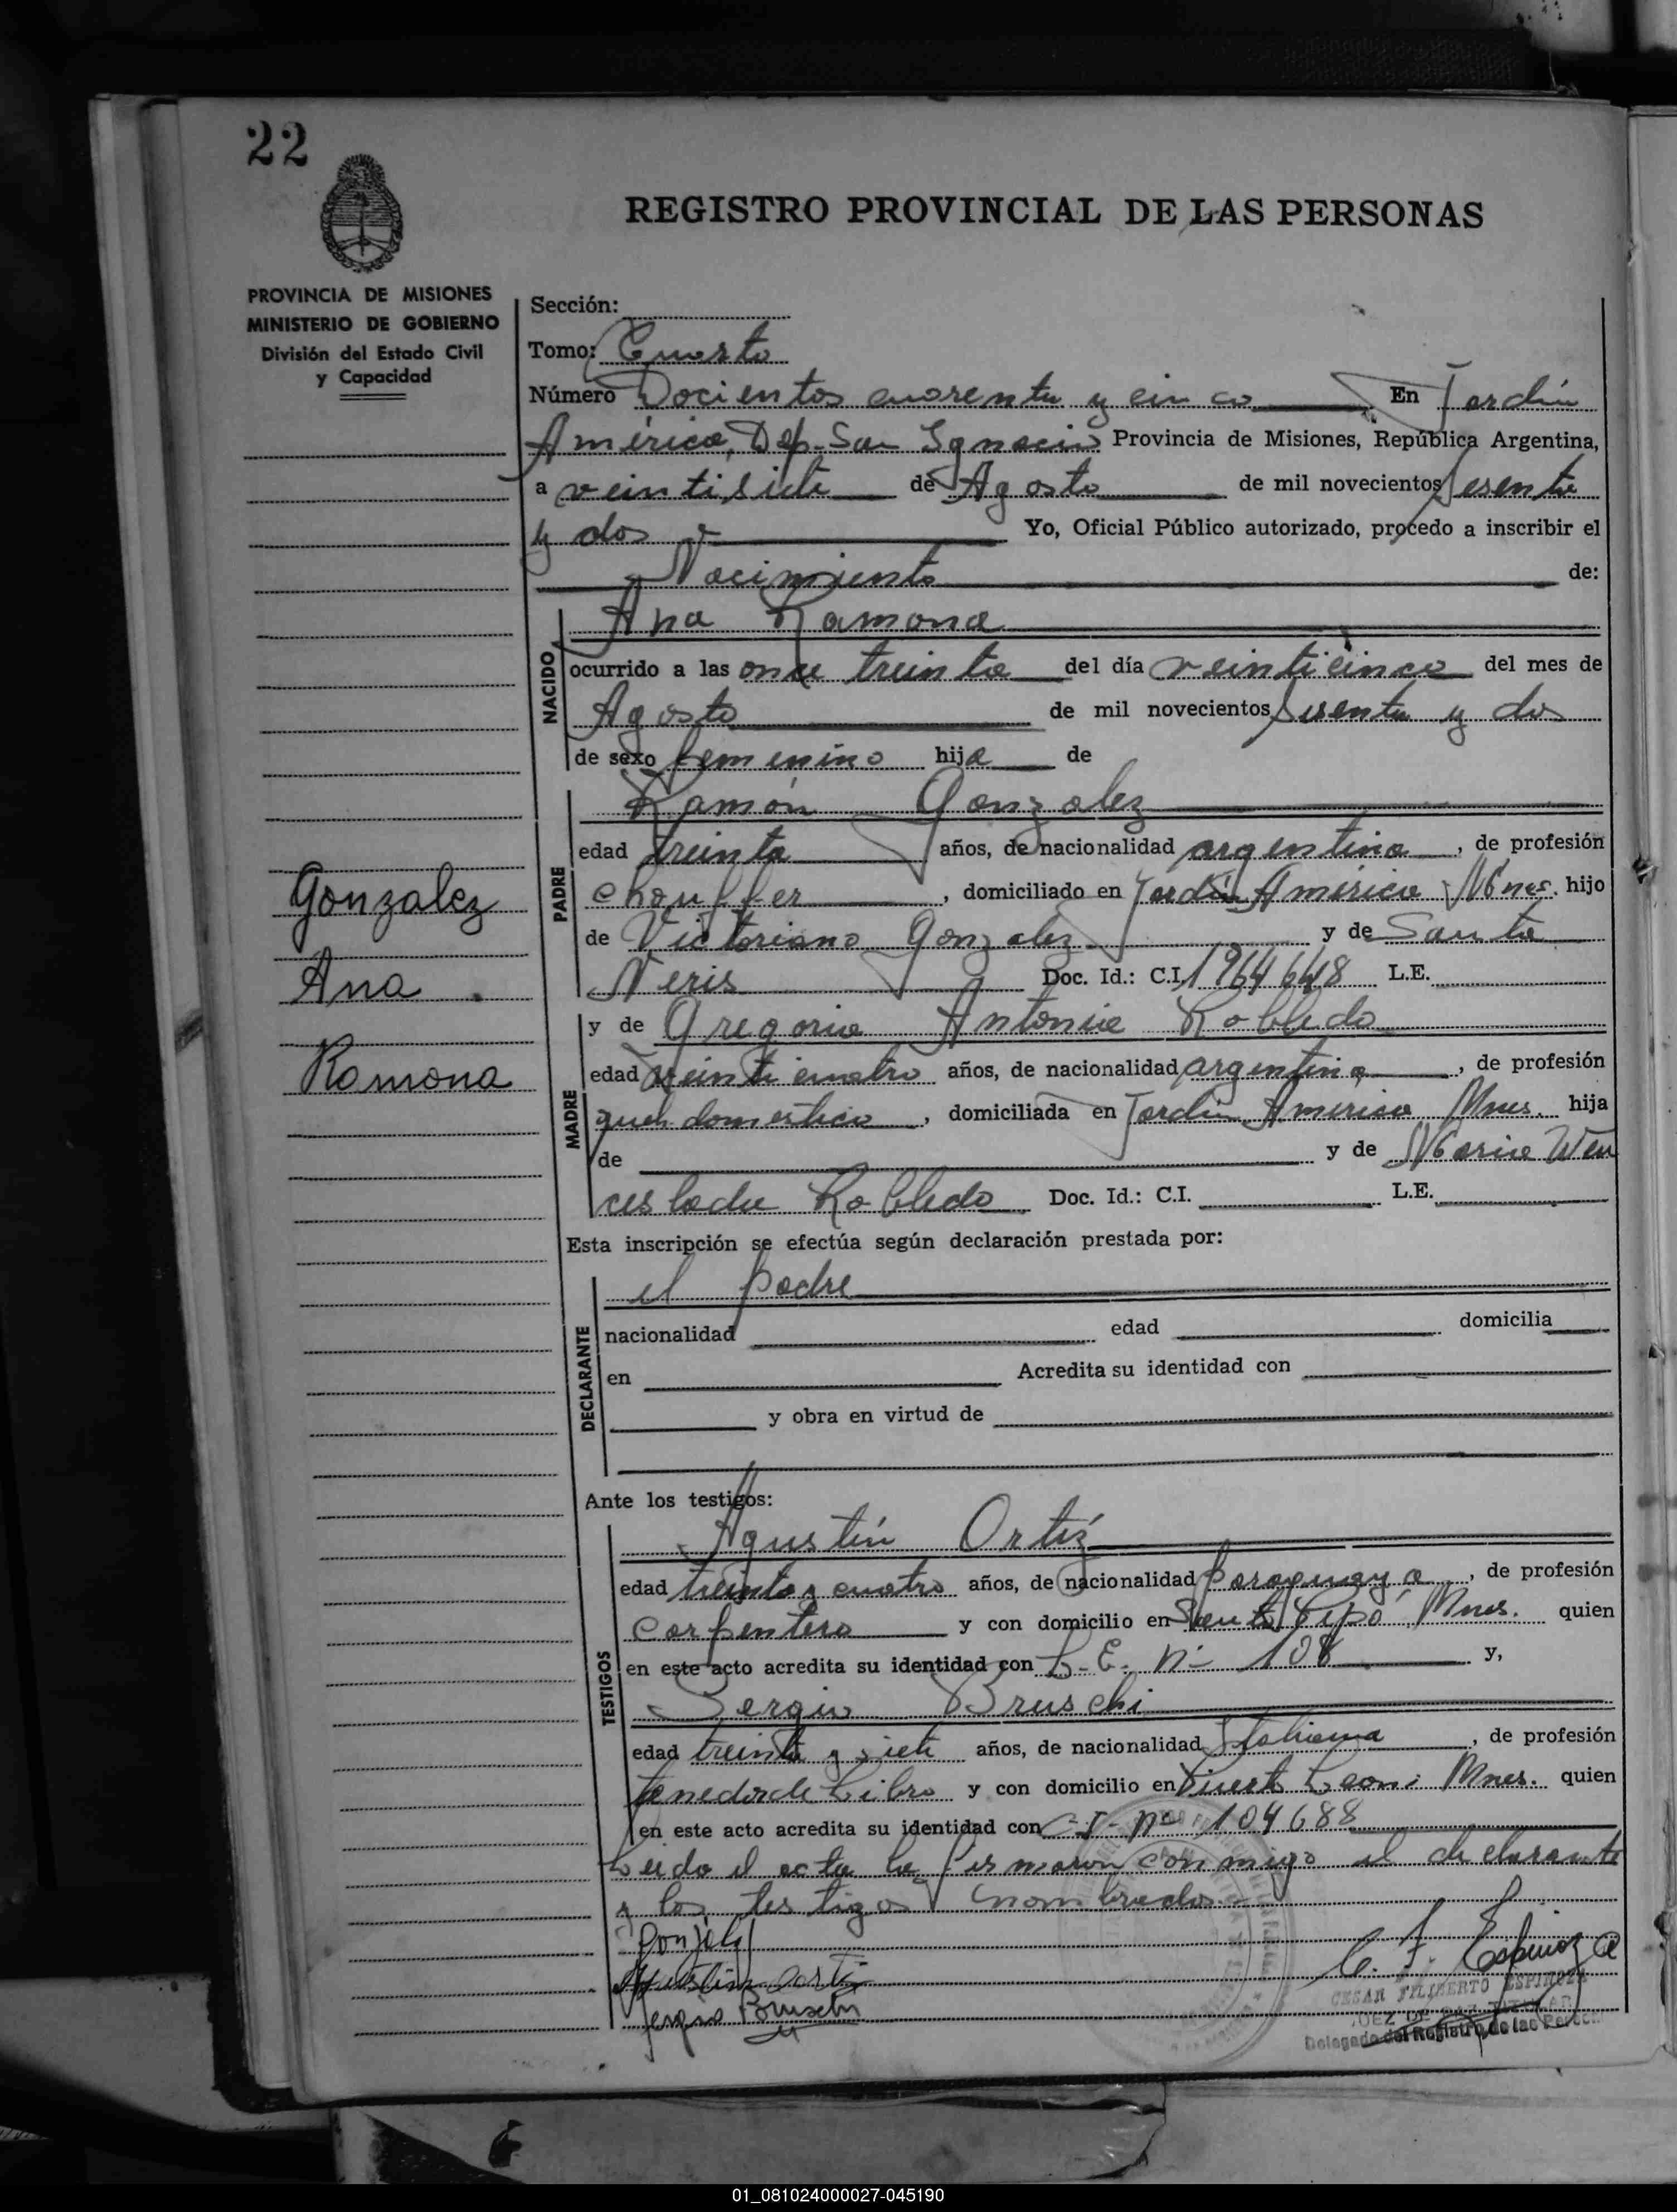 22
REGISTRO PROVINCIAL DE LAS PERSONAS
PROVINCIA DE MISIONES
MINISTERIO DE GOBIERNO
División del Estado Civil
y Capacidad
Sección:
Tomo: Cuarto
Número Docientos cuarenta y cinco En Jardín
América, Dep. San Ignacio Provincia de Misiones, República Argentina,
a veintisiete de Agosto de mil novecientos sesenta
y dos Yo, Oficial Público autorizado, procedo a inscribir el
Nacimiento de:
NACIDO
Ana Ramona
ocurrido a las once treinta del día veinticinco del mes de
Agosto de mil novecientos sesenta y dos
de sexo femenino hija de
PADRE
Ramón Gonzalez
edad treinta años, de nacionalidad argentina, de profesión
chouffer, domiciliado en Jardín América Mnes. hijo
de Victoriano Gonzalez y de Santa
Neris Doc. Id.: C.I. 1964648 L.E.
Gonzalez
Ana
Ramona
MADRE
y de Gregoria Antonia Robledo
edad veinticuatro años, de nacionalidad argentina, de profesión
queh. domestico, domiciliada en Jardin America Mnes. hija
de y de Maria Wen
ceslada Robledo Doc. Id.: C.I. L.E.
Esta inscripción se efectúa según declaración prestada por:
DECLARANTE
el padre
nacionalidad edad domicilia
en Acredita su identidad con
y obra en virtud de
Ante los testigos:
TESTIGOS
Agustín Ortíz
edad treinta y cuatro años, de nacionalidad paraguaya, de profesión
carpentero y con domicilio en Puerto Tipó Mnes. quien
en este acto acredita su identidad con L. E. n- 108 y,
Sergio Bruschi
edad treinta y siete años, de nacionalidad Italiana, de profesión
tenedor de Libro y con domicilio en Puerto Leoni Mnes. quien
en este acto acredita su identidad con C-I- nº 104688
Leida el acta la firmaron conmigo el declarante
y los testigos nombrados.-
Gonzalez
Agustin Ortiz
Sergio Bruschi
C. F. Espinoza
CESAR FILIBERTO ESPINOZA
JUEZ DE PAZ TITULAR
Delegado del Registro de las Person
01_081024000027-045190